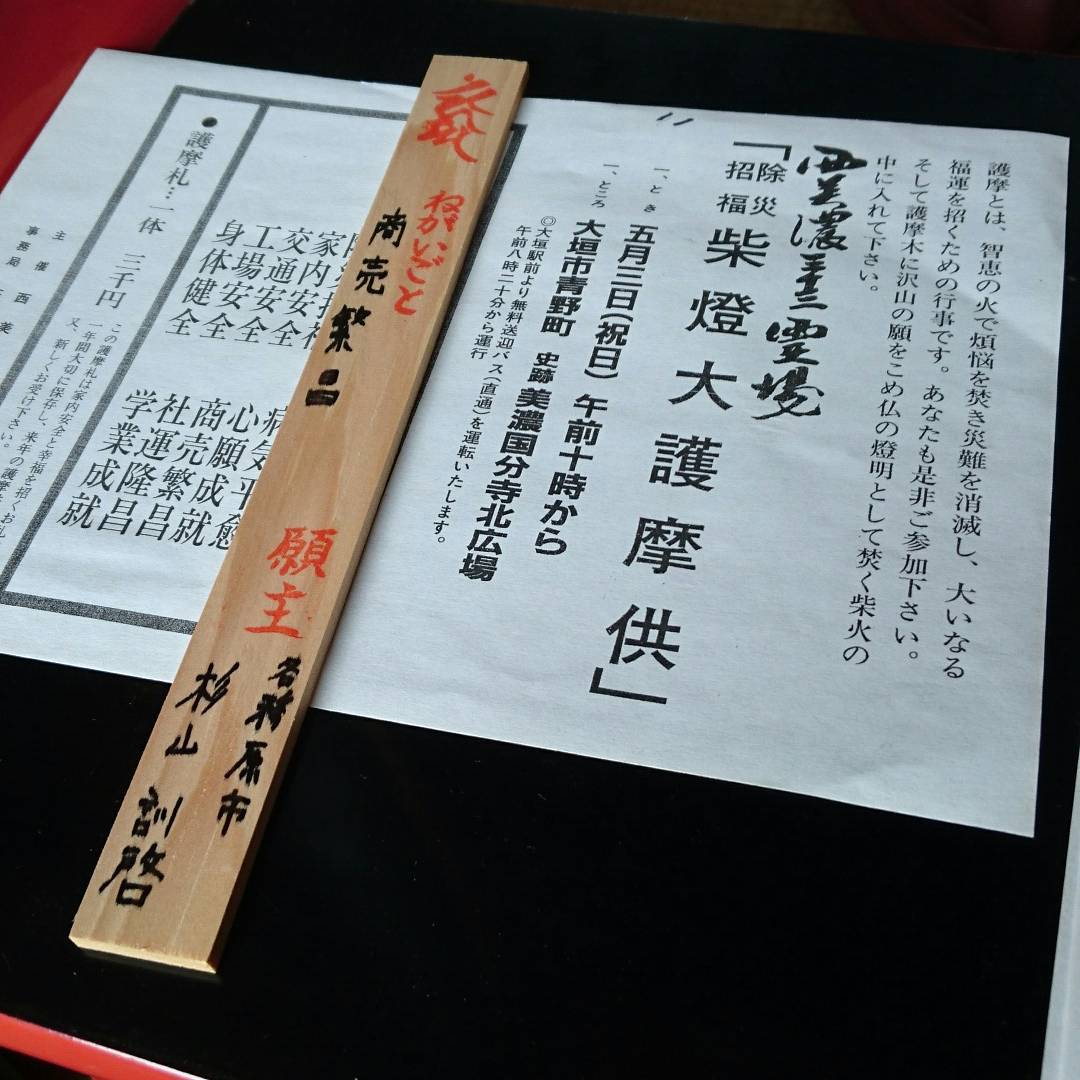 護摩とは、智恵の火で煩悩を焚き災難を消滅し、大いなる
福運を招くための行事です。あなたも是非ご参加下さい。
そして護摩木に沢山の願をこめ仏の燈明として焚く柴火の
中に入れて下さい。
西美濃三十三霊場
「除災
招福
柴燈大護摩供」
一、とき 五月三日(祝日) 午前十時から
一、ところ 大垣市青野町 史跡 美濃国分寺北広場
◎大垣駅前より無料送迎バス(直通)を運転いたします。
午前八時二十分から運行
ねがいごと
商売繁昌
願主
各務原市
杉山 訓啓
家内
交通安全
工場安全
身体健全
病気平癒
心願成就
商売繁昌
社運隆昌
学業成就
●護摩札…一体 三千円
この護摩札は家内安全と幸福を招くお札
一年間大切に保存し、来年の護摩
又、新しくお受け下さい。
主催 西美
事務局